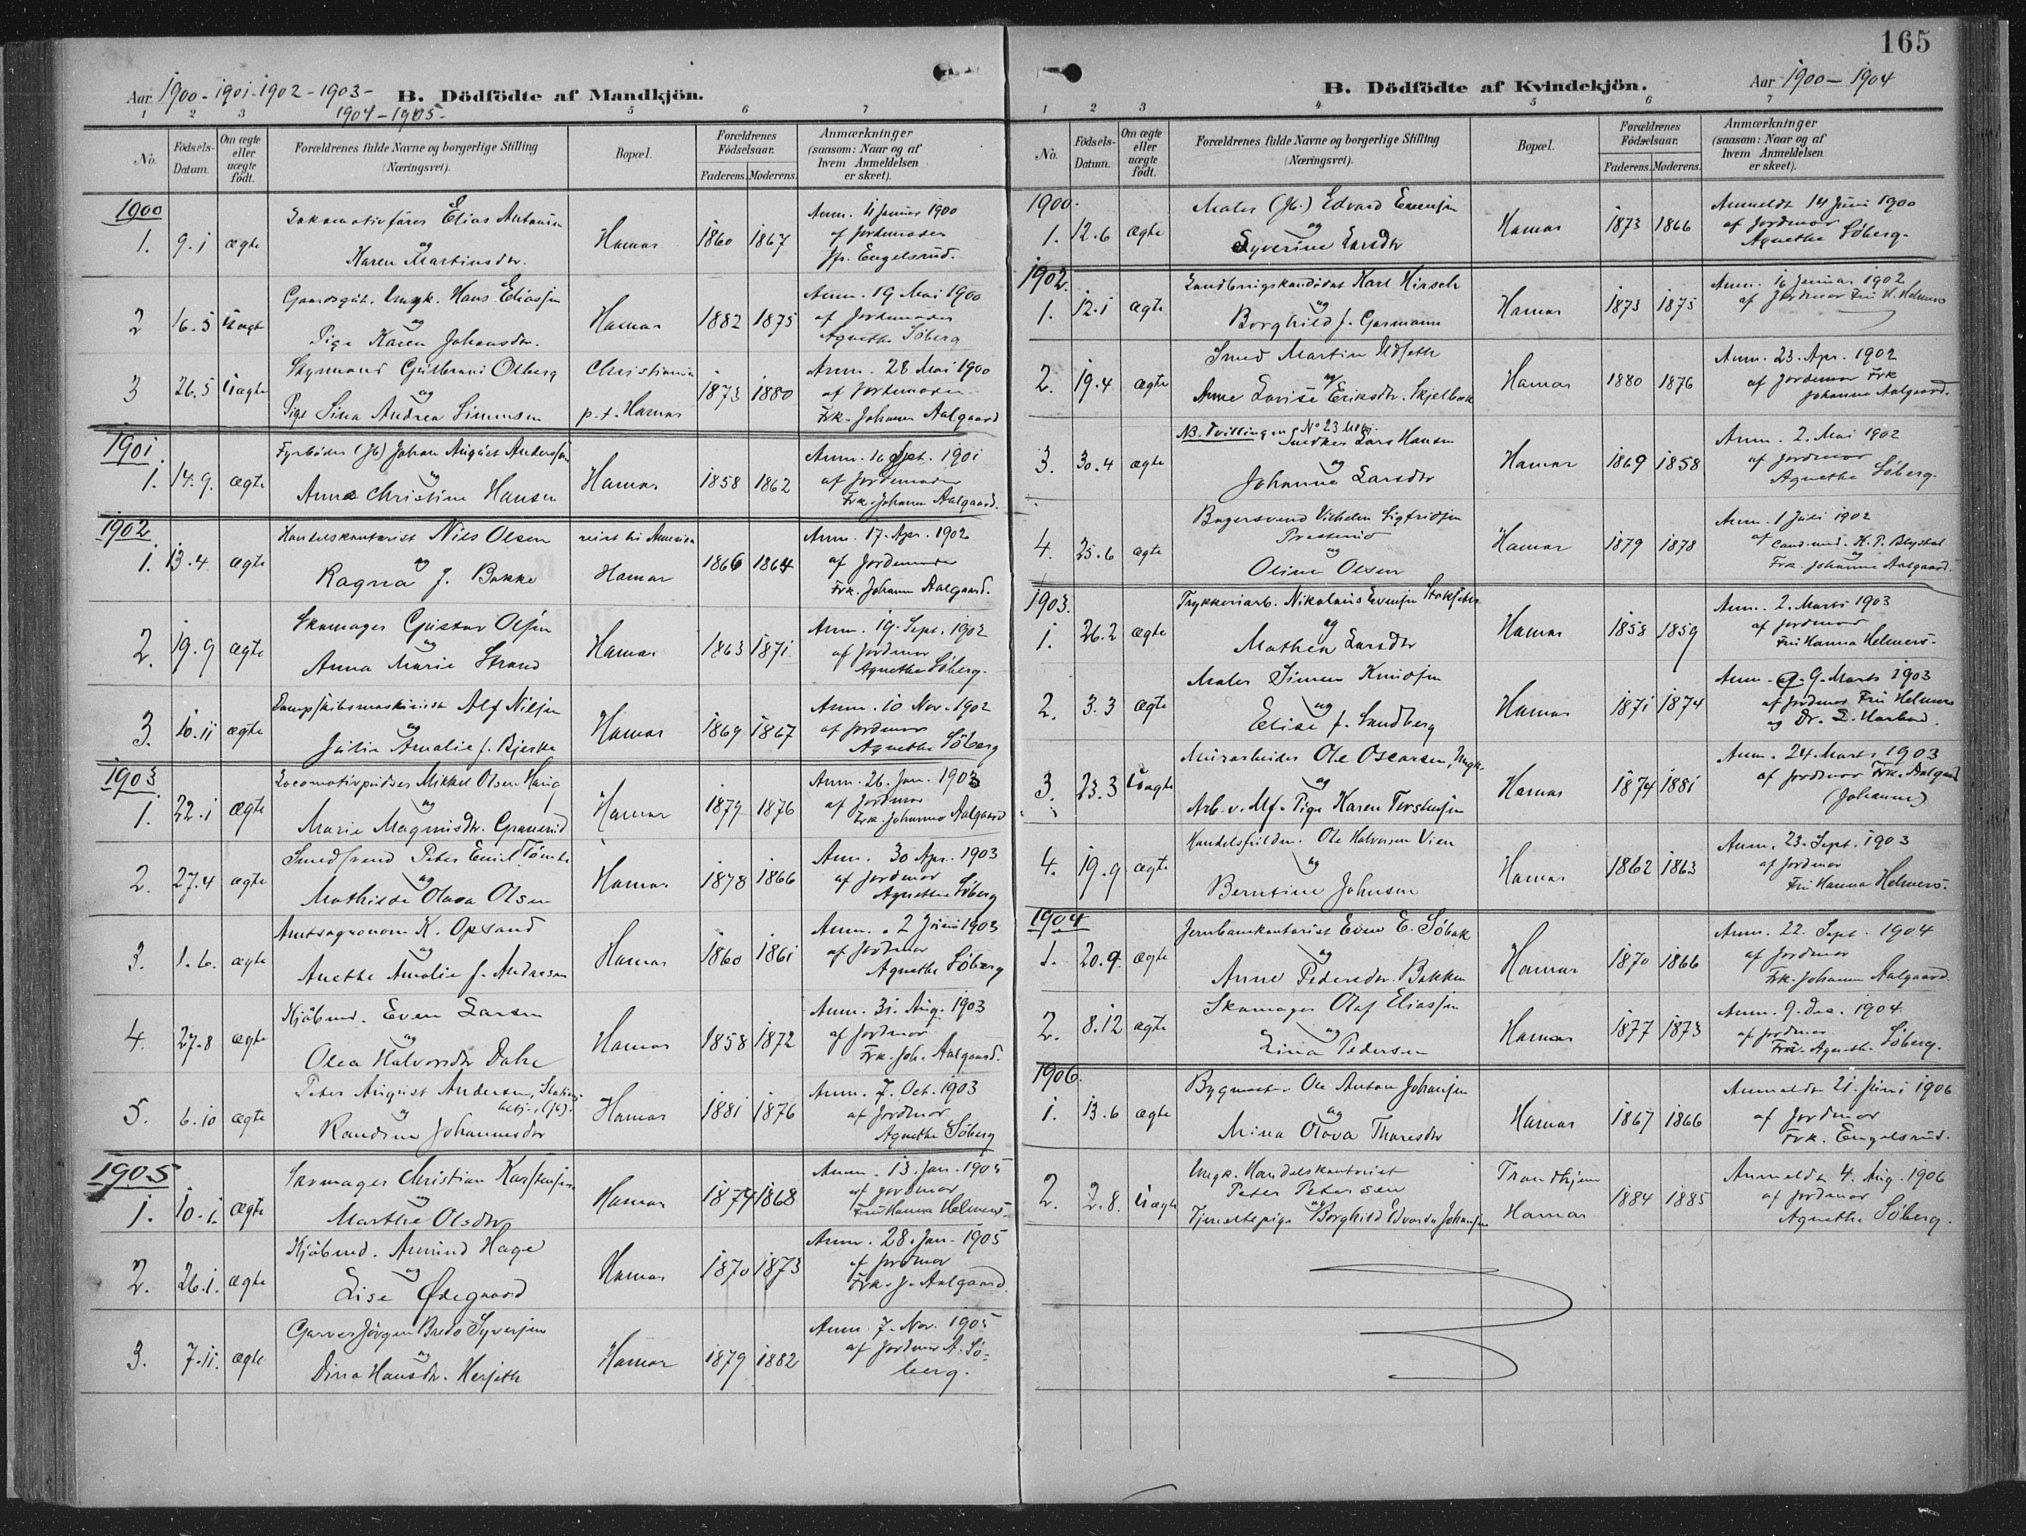 165
Aar 1900-1901-1902-1903-
1904-1905-
B. Dödfödte af Mandkjön.
1 2 3 5 6 7
No.
Födsels-
Datum.
Om ægte
eller
uægte
födt.
Forældrenes fulde Navne og borgerlige Stilling
(Næringsvei).
Bopæl.
Forældrenes
Födselsaar.
Faderens. Moderens.
Anmærkninger
(saasom: Naar og af
hvem Anmeldelsen
er skeet).
1900
Lokomotivfører Elias Antonsen
og
Karen Martinsdr.
1. 9.1 ægte Hamar 1860 1867
Anm. 11 Januar 1900
af Jordemoder
Engelsrud.
Hans Eliassen
og
Pige Karen Johansdr.
2 16.5 Uægte Hamar 1882 1875
Anm. 19 Mai 1900
af Jordemoder
Agnethe Söberg
Gulbrand Olberg
og
Pige Lina Andrea Simensen
3 26.5 Uægte Christiania
p.t. Hamar
1873 1880
Anm. 28 Mai 1900
af Jordemoder
Frk. Johanne Aalgaard
1901
Fyrbøder (Jb) Johan August Andersen
og
Anna Christine Hansen
1. 14.9. ægte Hamar 1858 1862
Anm. 16 Sept. 1901
af Jordemoder
Frk. Johanne Aalgaard.
1902
Handelskontorist Nils Olsen
og
Ragna f. Bakke
1. 13.4. ægte reist til Amerika
Hamar
1866 1864
Anm. 17. Apr. 1902
af Jordemoder
Frk. Johanne Aalgaard.
Skomager Gustav Olsen
og
Anna Marie Strand
2. 19.9 ægte Hamar 1863 1871
Anm. 19. Sept. 1902
af Jordmor
Agnethe Söberg.
Dampskibsmaskinist Alf Nilsen
og
Julie Amalie f. Bjerke
3. 10.11 ægte Hamar 1869 1867
Anm. 10 Nov. 1902
af Jordmor
Agnethe Söberg
1903
Locomotivpudser Mikkel Olsen Haug
og
Marie Magnusdr. Granerud
1. 22.1 ægte Hamar 1879 1876
Anm. 26. Jan. 1903
af Jordmor
Frk. Johanne Aalgaard
Smedsvend Peter Emil Tömte
og
Mathilde Olava Olsen
2. 27.4 ægte Hamar 1878 1866
Anm. 30 Apr. 1903
af Jordmor
Agnethe Söberg
Amtsagronom K. Opsand
og
Anethe Amalie f. Andresen
3. 1.6. ægte Hamar 1860 1861
Anm. 2 Juni 1903
af Jordmor
Agnethe Söberg
Kjöbmd. Even Larsen
og
Olea Halvorsdr Dahl
4. 27.8 ægte Hamar 1858 1872
Anm. 31. Aug. 1903
af Jordmor
Frk. Joh. Aalgaard.
Peter August Andersen, Stations-
betj. (Jb).
og
Randine Johannesdr
5. 6.10 ægte Hamar 1881 1876
Anm. 7. Oct. 1903
af Jordmor
Agnethe Söberg
1905
Christian Karstensen
og
Marthe Olsdtr
1. 10.1. ægte Hamar 1874 1868
Anm. 13. Jan. 1905
af Jordmor
Fru Hanna Helmers.
Kjöbmd. Amund Hage
og
Lise Ødegaard
2. 26.1. ægte Hamar 1870 1873
Anm. 28. Jan. 1905
af Jordmor
Frk. J. Aalgaard.
Garver Jörgen Bredo Syversen
og
Dina Hansdr.
3. 7.11. ægte Hamar 1879 1882
Anm. 7. Nov. 1905
af Jordmor A. Sö-
berg.
B. Dödfödte af Kvindekjön.
Aar 1900 - 1904
1 2 3 4 5 6 7
No.
Födsels-
Datum.
Om ægte
eller
uægte
födt.
Forældrenes fulde Navne og borgerlige Stilling
(Næringsvei).
Bopæl.
Forældrenes
Födselsaar.
Faderens. Moderens.
Anmærkninger
(saasom: Naar og af
hvem Anmeldelsen
er skeet).
1900.
Maler (Jb.) Edvard Evensen
og
Syverine Larsdr
1. 12.6 ægte Hamar 1873 1866
Anmeldt 14 Juni 1900
af Jordmor
Agnethe Söberg.
1902.
Landbrugskandidat Karl Hirsch
og
Borghild f. Garmann
1. 12.1 ægte Hamar 1873 1875
Anm. 16 Januar 1902
af Jordmor Fru H. Helmers
Smed Martin Udseth
og
Anne Lovise Eriksdr. Skjelbek
2. 19.4 ægte Hamar 1880 1876
Anm. 23. Apr. 1902
af Jordmor Frk
Johanne Aalgaard.
NB. Tvilling No 23
Snedker Lars Hansen
og
Johanne Larsdr
3. 30.4 ægte Hamar 1869 1858
Anm. 2. Mai 1902
af Jordmor
Agnethe Söberg.
Bagersvend Vilhelm Sigfridsen
Presterud
og
Oline Olsen
4. 25.6 ægte Hamar 1879 1878
Anm. 1 Juli 1902
af Cand. med. K. P. Blystad
og
Frk. Johanne Aalgaard.
1903.
Trykkeriarb. Nikolaus Evensen
og
Mathea Larsdr
1. 26.2 ægte Hamar 1858 1859
Anm. 2. Marts 1903
af Jordmor
Fru Hanna Helmers.
Maler Simen Knudsen
og
Elise f. Sandberg
2. 3.3 ægte Hamar 1871 1874
Anm. 9. Marts 1903
af Jordmor Fru Helmers
og Dr. D. Harbad.
Murarbeider Ole Oscarsen, Ungk.
og
Arb. v. Mf. Pige Karen Torstensen
3. 23.3 Uægte Hamar 1874 1881
Anm. 24. Marts 1903
af Jordmor Frk. Aalgaard
(Johanne)
Ole Halvorsen Vien
og
Berntine Johnsen
4. 19.9 ægte Hamar 1862 1863
Anm. 23. Sept. 1903
af Jordmor
Fru Hanna Helmers.
1904
Jernbanekontorist Even E. Söbak
og
Anne Pedersdr. Bakken
1. 20.9. ægte Hamar 1870 1866
Anm. 22. Sept. 1904
af Jordmor
Frk. Johanne Aalgaard.
Skomager Olaf Eliassen
og
Lina Pedersen
2. 8.12 ægte Hamar 1877 1873
Anm. 9. Dec. 1904
af Jordmor
Frk. Agnethe Söberg.
1906.
Bygmester Ole Anton Johansen
og
Mina Olava Thoresdr
1. 13.6 ægte Hamar 1867 1866
Anmeldt 21. Juni 1906
af Jordmor
Frk. Engelsrud.
Ungk. Handelskontorist
Peter Petersen
og
Tjenestepige Borghild Edvarda Johansen
2. 2.8. Uægte Trondhjem
Hamar
1884 1885
Anmeldt 4. Aug. 1906
af Jordmor
Agnethe Söberg.